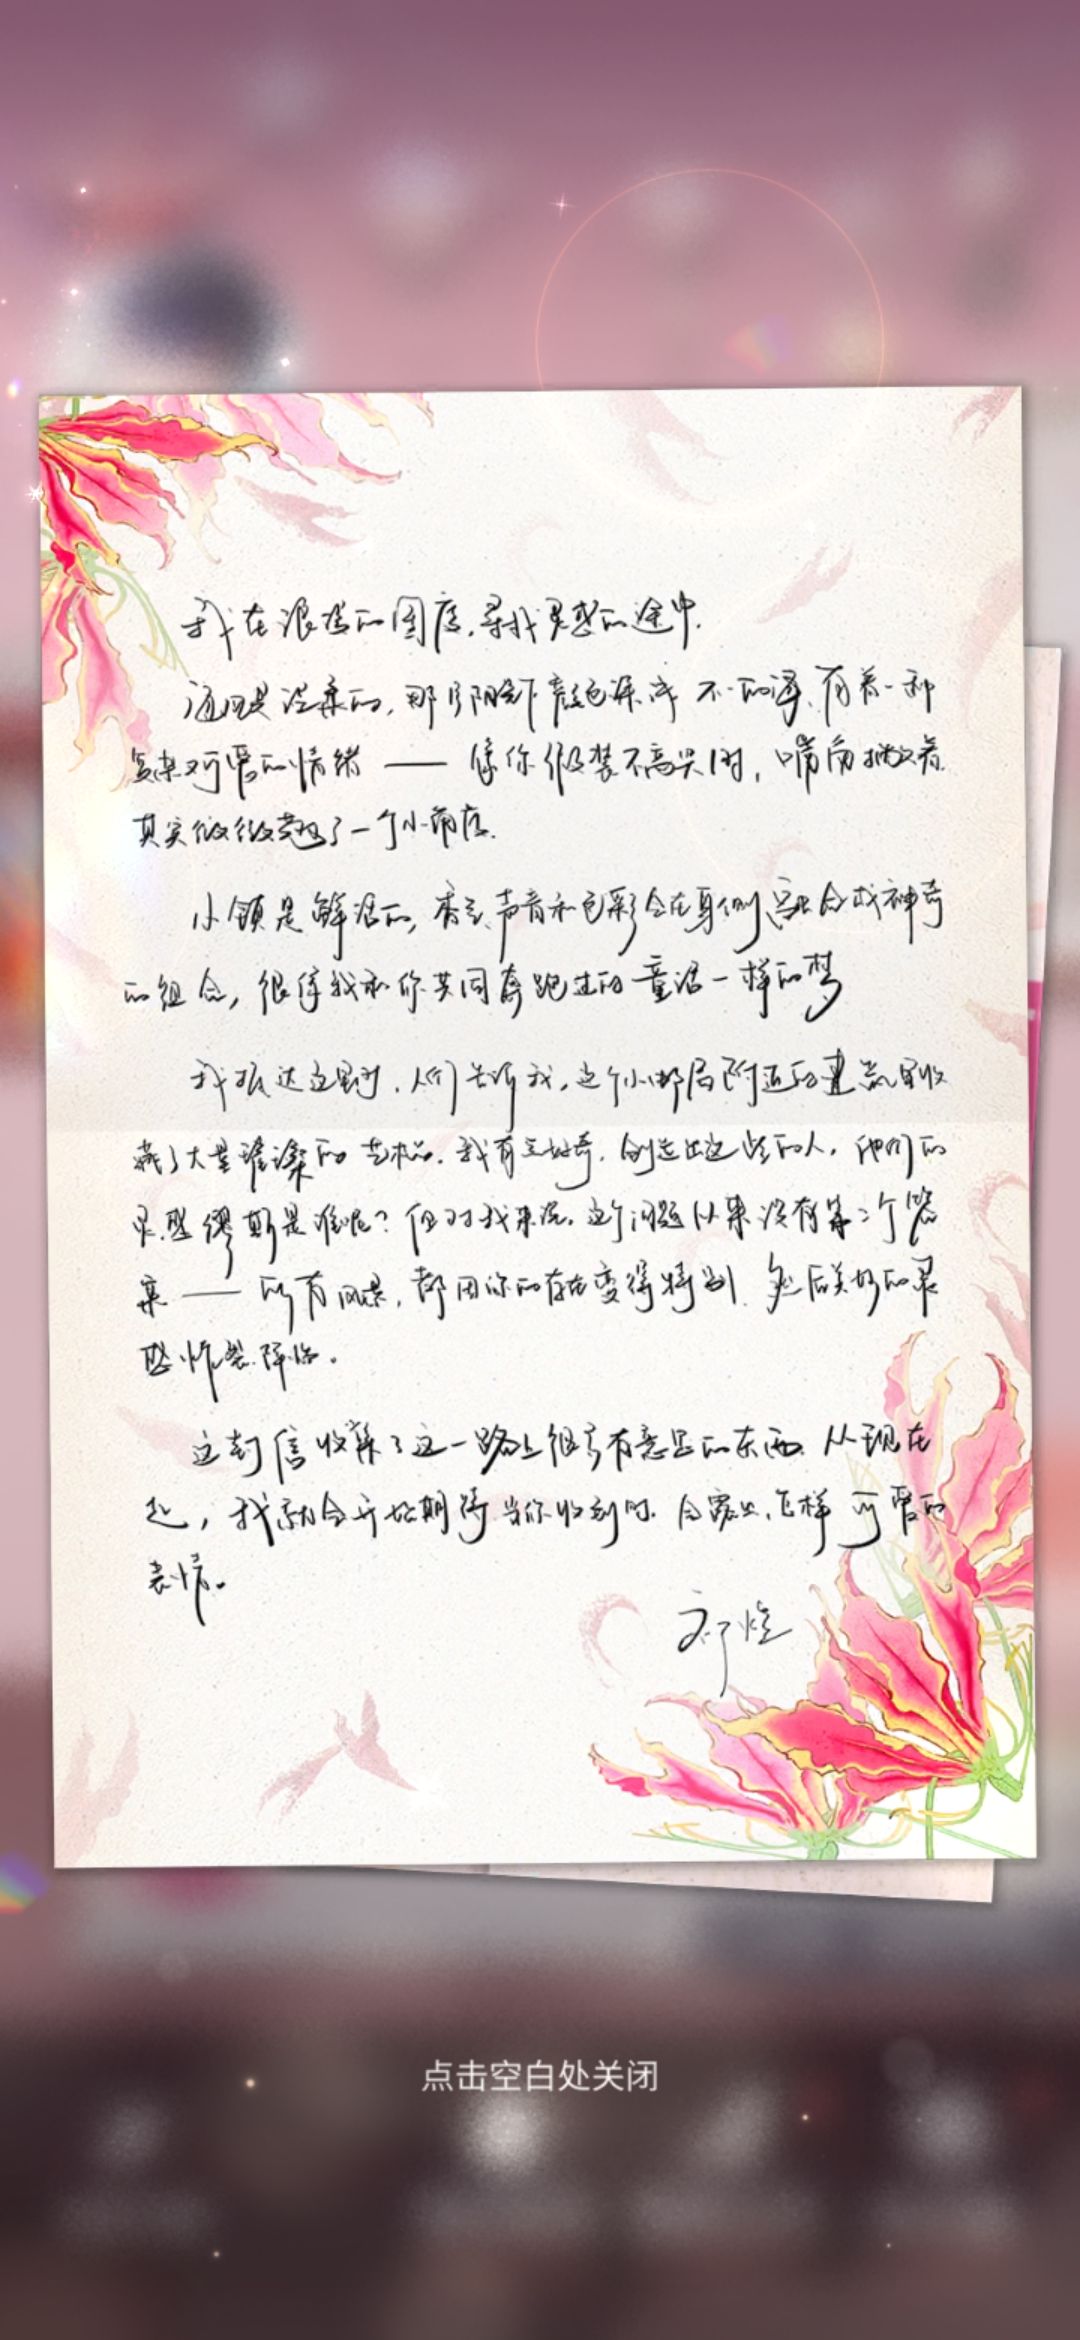 我在浪漫的国度,寻找灵感的途中.
这里是浓郁的,那 阴 颜色深 不一的 ,有着一种
复杂又可爱的情绪 —— 像你假装不高兴时,嘴角撇着
其实微微翘了一个小弧度.
小镇是鲜活的,香气、声音和色彩会在身侧、融合成神奇
的组合,很像我和你共同奔跑过的童话一样的梦
我抵达这里时,人们告诉我,这个小邮局附近的建筑里收
藏了大量璀璨的艺术品.我有点好奇,创造出这些的人,他们的
灵感缪斯是谁呢?但对我来说,这个问题从来没有第二个答
案 —— 所有风景,都因你的存在变得特别.然后美好的灵
感炸裂.降临。
这封信收集了这一路上很多有意思的东西.从现在
起,我就会开始期待当你收到时.会露出、怎样可爱的
表情。
祁煜
点击空白处关闭